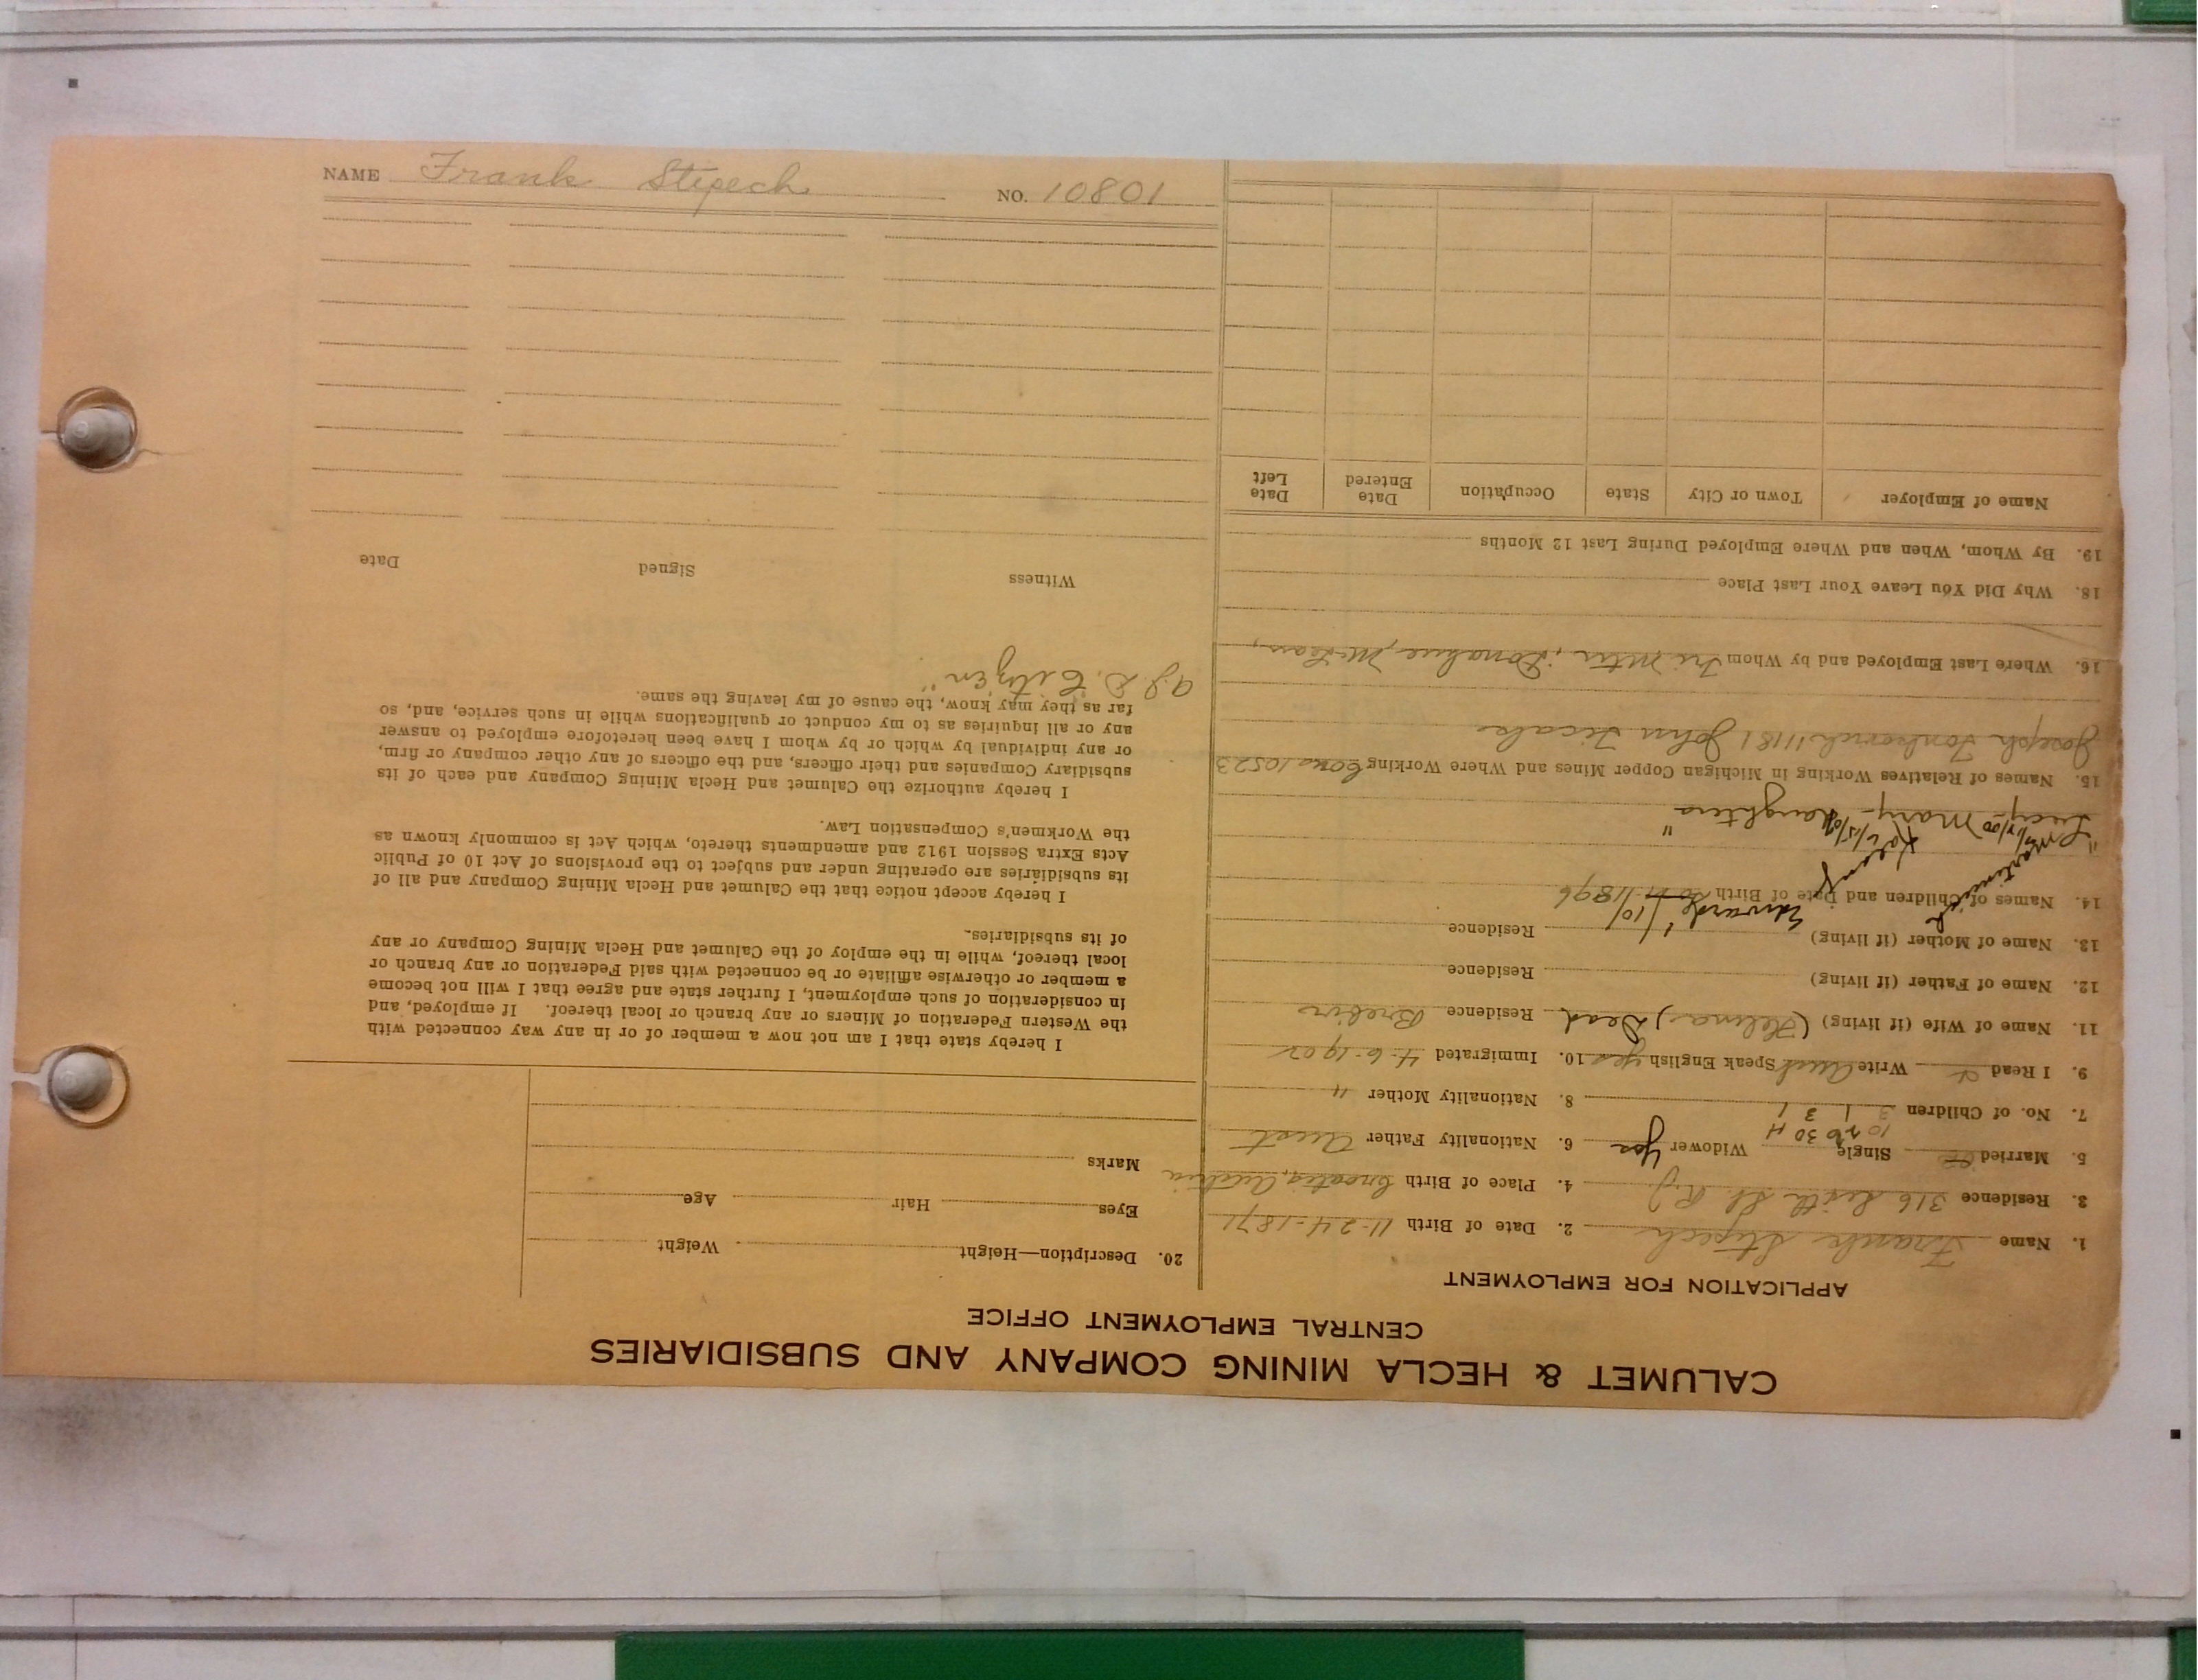 NAME Frank Stipech NO. 10801
CALUMET & HECLA MINING COMPANY AND SUBSIDIARIES
CENTRAL EMPLOYMENT OFFICE
APPLICATION FOR EMPLOYMENT
1. Name Frank Stipech 2. Date of Birth 11-24-1871
3. Residence 316 Sixth St R.J. 4. Place of Birth Croatia, Austria
5. Married Single Widower yes 6. Nationality Father Aust
10 26 30 H
7. No. of Children 3 1 3 1 8. Nationality Mother "
9. I Read & Write Aust Speak English yes 10. Immigrated 4-6-1902
11. Name of Wife (if living) (Helena) Dead Residence
12. Name of Father (if living) Residence
13. Name of Mother (if living) Residence
14. Names of Children and Date of Birth 1896
Lucy - Mary - daughters
15. Names of Relatives Working in Michigan Copper Mines and Where Working 10523
Joseph 11181 John
16. Where Last Employed and by Whom Tri Mtn, Donahue, McLean,
18. Why Did You Leave Your Last Place
19. By Whom, When and Where Employed During Last 12 Months
Name of Employer Town or City State Occupation Date Entered Date Left
20. Description—Height Weight
Eyes Hair Age
Marks
I hereby state that I am not now a member of or in any way connected with
the Western Federation of Miners or any branch or local thereof. If employed, and
in consideration of such employment, I further state and agree that I will not become
a member or otherwise affiliate or be connected with said Federation or any branch or
local thereof, while in the employ of the Calumet and Hecla Mining Company or any
of its subsidiaries.
I hereby accept notice that the Calumet and Hecla Mining Company and all of
its subsidiaries are operating under and subject to the provisions of Act 10 of Public
Acts Extra Session 1912 and amendments thereto, which Act is commonly known as
the Workmen's Compensation Law.
I hereby authorize the Calumet and Hecla Mining Company and each of its
subsidiary Companies and their officers, and the officers of any other company or firm,
or any individual by which or by whom I have been heretofore employed to answer
any or all inquiries as to my conduct or qualifications while in such service, and, so
far as they may know, the cause of my leaving the same.
"Citizen"
Witness Signed Date